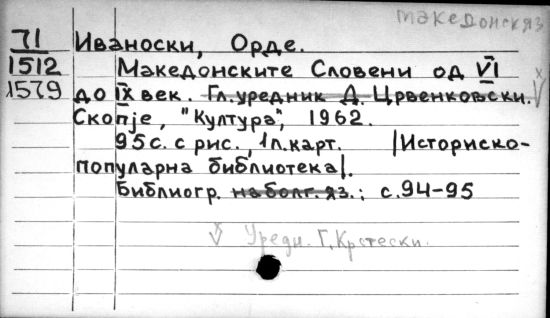 македонск яз
71 Иваноски, Орде.
1512 Македонските Словени од VI
1579 до IX век. Гл. уредник Д. Црвенковски. V
Скопје, "Култура", 1962.
95 с. с рис., 1 л. карт. |Историско-
популарна библиотека|.
Библиогр. на болг. яз.: с. 94-95
V Уредн. Г. Крстески.